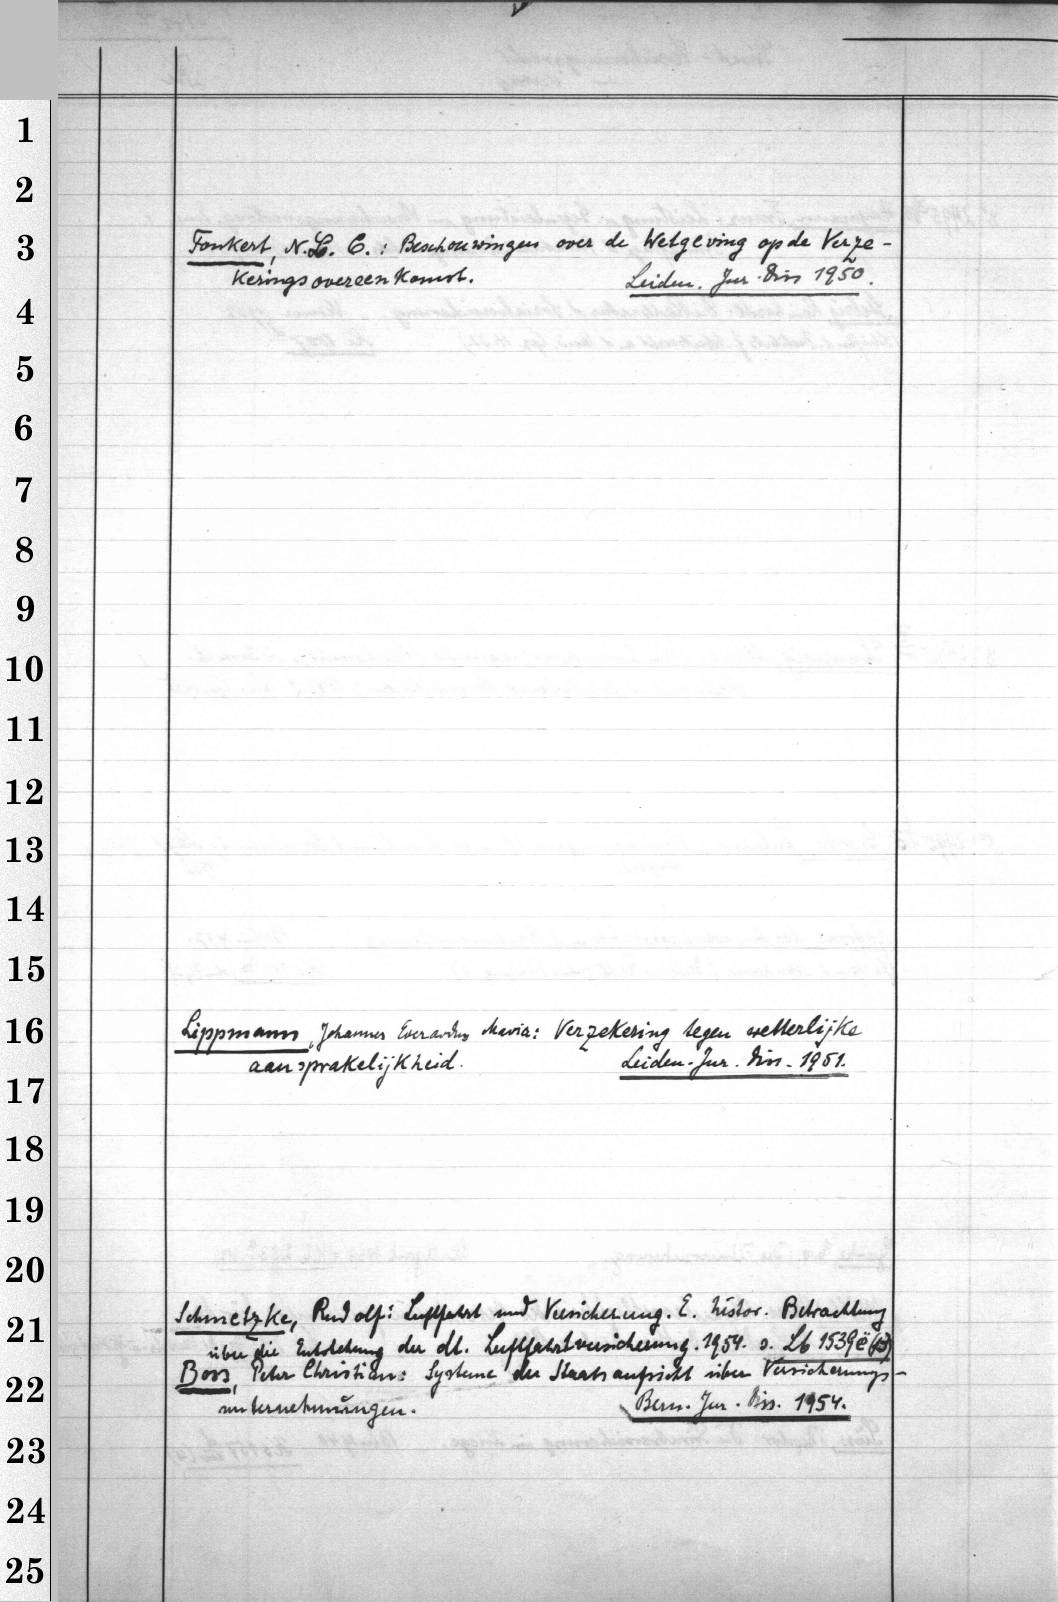 1
2
3
Fonkert, N. L. C. : Beschouwingen over de Wetgeving op de Verze-
keringsovereenkomst. Leiden. Jur. Diss 1950.
4
5
6
7
8
9
10
11
12
13
14
15
16
Lippmann, Johannes Everardus Maria: Verzekering tegen wetterlijke
aansprakelijkheid. Leiden. Jur. Diss. 1951.
17
18
19
20
21
Schmetzke, Rudolf: Luftfahrt und Versicherung. E. histor. Betrachtung
über die Entstehung der dt. Luftfahrtversicherung. 1954. s. Lb 1539
22
Boss, Peter Christian: Systeme der Staatsaufsicht über Versicherungs-
unternehmungen. Bern. Jur. Diss. 1954.
23
24
25